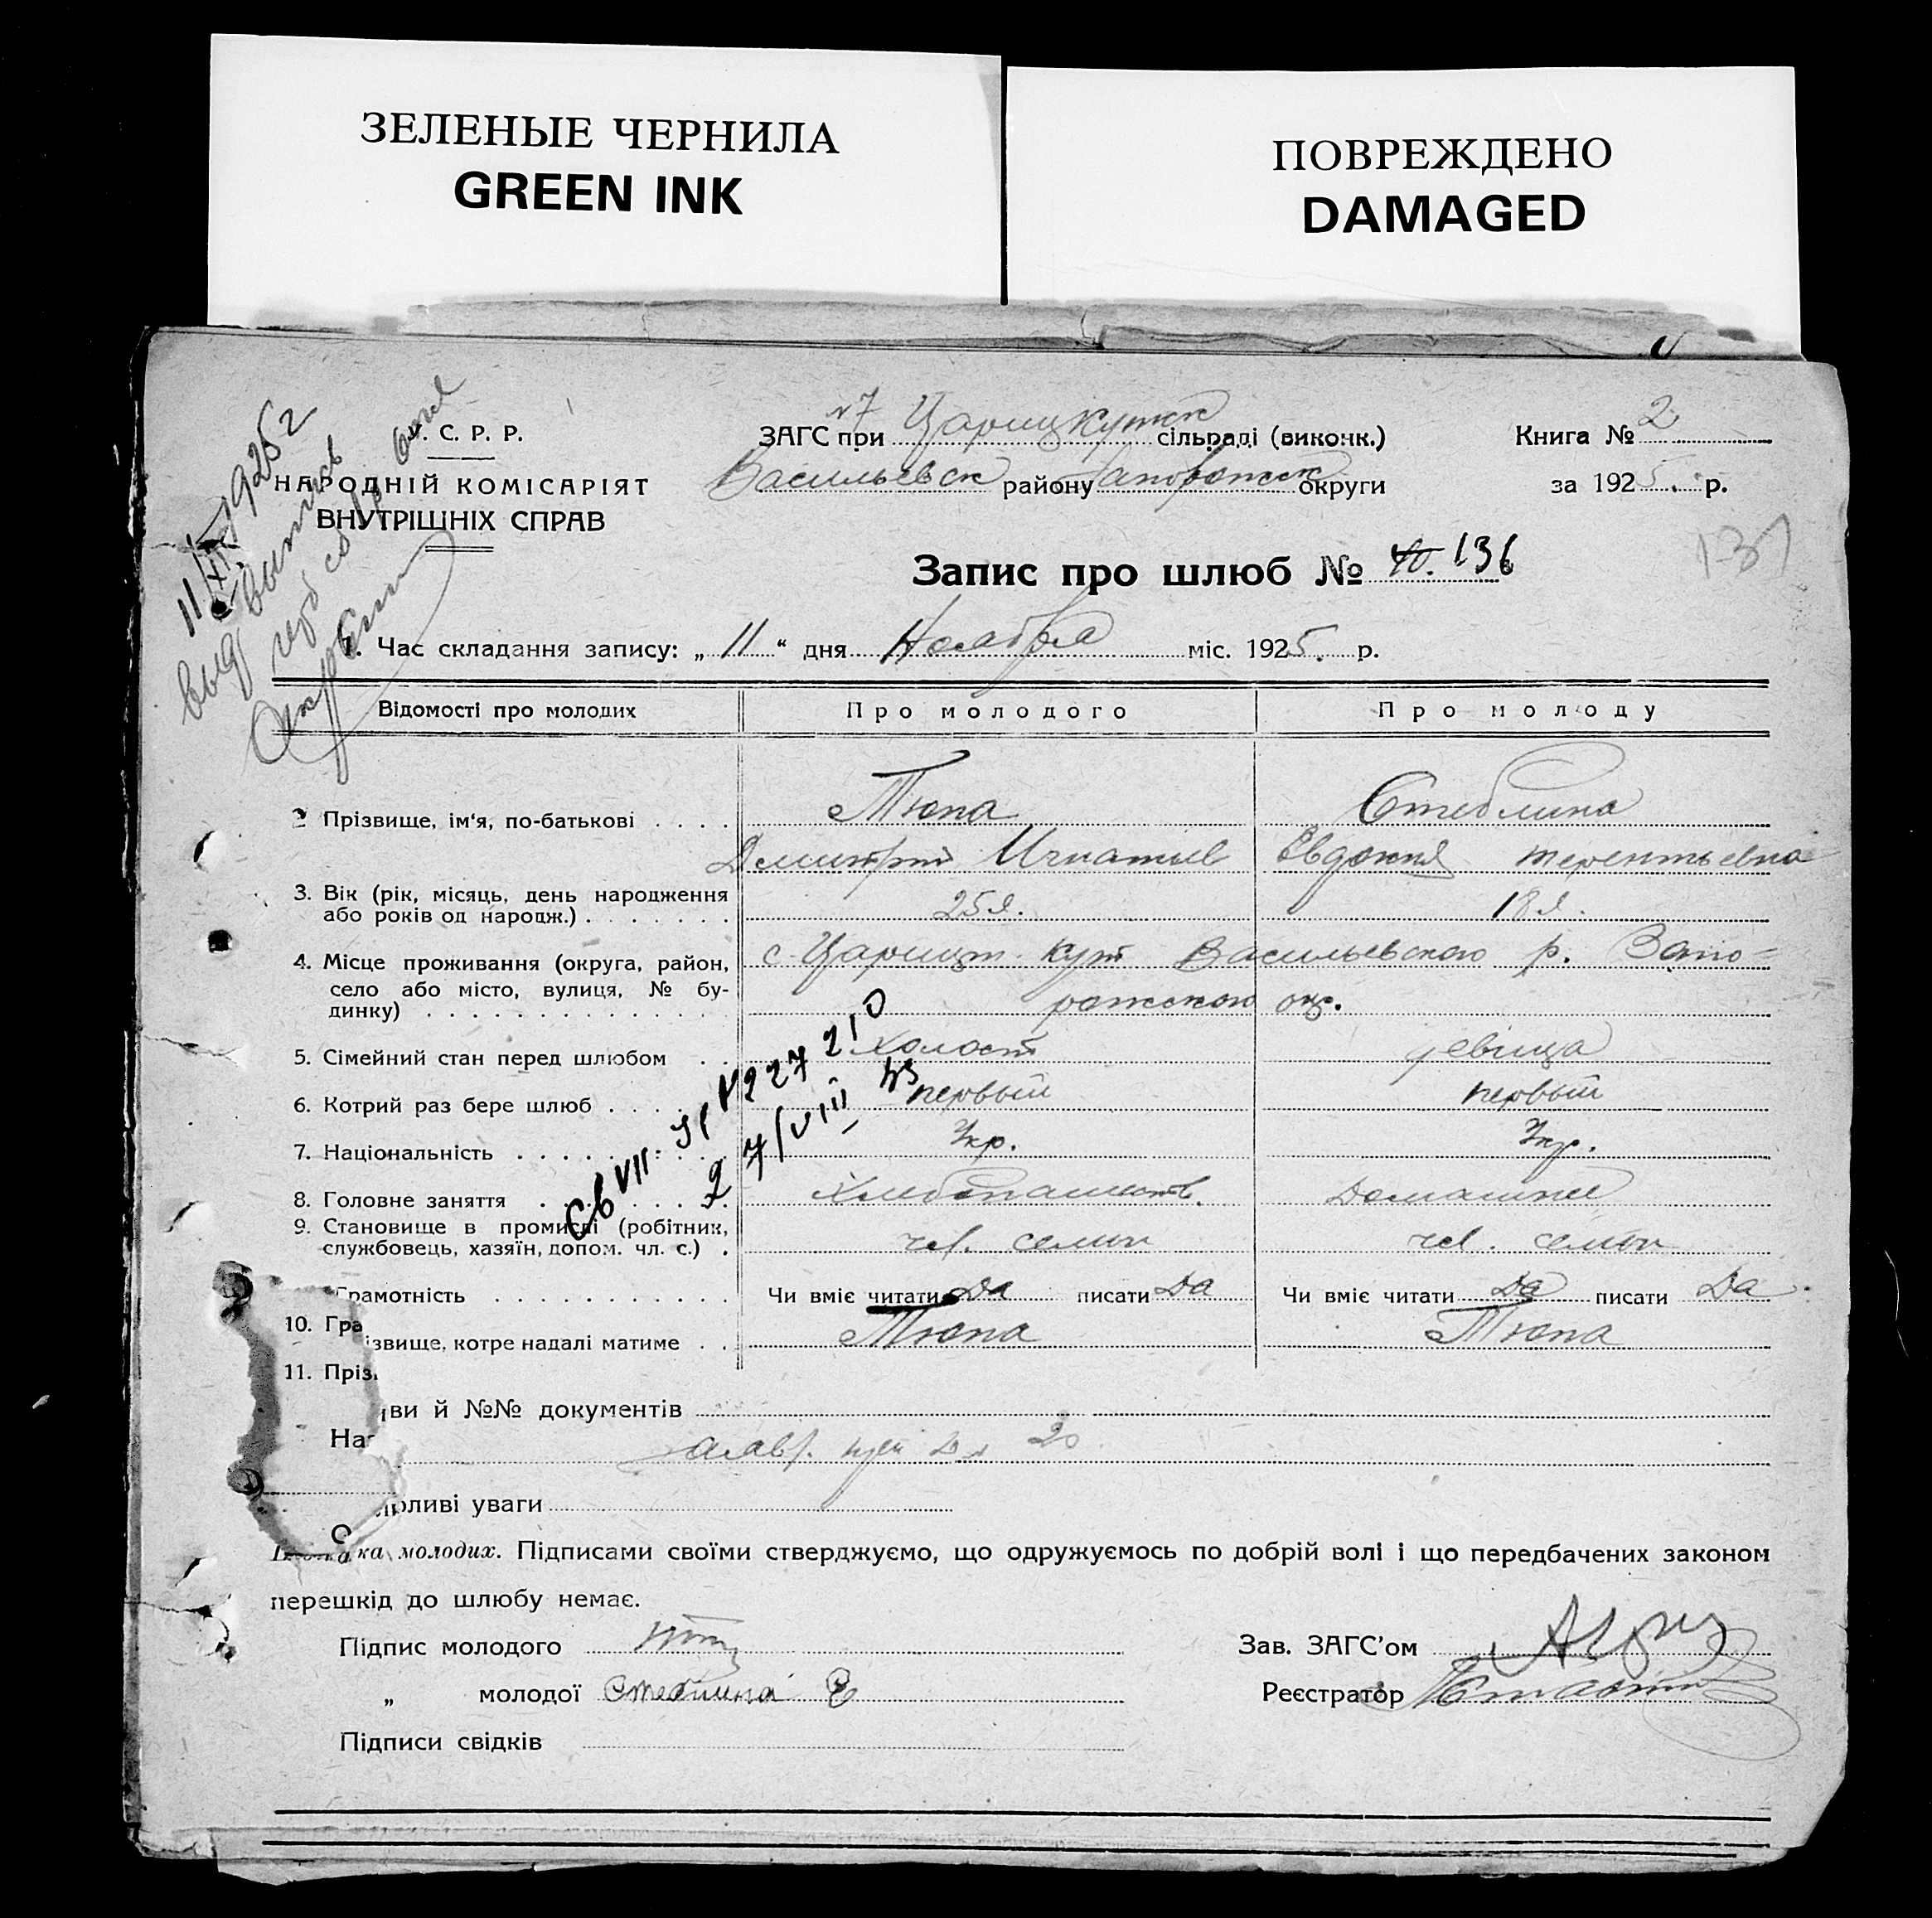 ЗЕЛЕНЫЕ ЧЕРНИЛА
GREEN INK
ПОВРЕЖДЕНО
DAMAGED
У. С. Р. Р.
НАРОДНІЙ КОМІСАРІЯТ
ВНУТРІШНІХ СПРАВ
11/XI 1925 г
ЗАГС при Царицкутск сільраді (виконк.)
Васильевск району Запорожск округи
Книга № 2
за 1925 р.
Запис про шлюб № 40. 136
137
1. Час складання запису: „ 11 “ дня Ноября міс. 1925. р.
Відомості про молодих Про молодого Про молоду
2 Прізвище, ім'я, по-батькові . . . . Тюпа Стеблина
Дмитрий Игнатьев Евдокия Терентьевна
3. Вік (рік, місяць, день народження
або років од народж.) . . . . . . . 25 л. 18 л.
4. Місце проживання (округа, район, с. Царицын Кут Васильевского р. Запо-
село або місто, вулиця, № бу-
динку) . . . . . . . . . . . . . . рожского окр.
5. Сімейний стан перед шлюбом . . Холост девица
6. Котрий раз бере шлюб . . . . . первый первый
7. Національність . . . . . . . . . Укр. Укр.
8. Головне заняття . . . . . . . . Хлебопашеств. Домашнее
9. Становище в промислі (робітник,
службовець, хазяїн, допом. чл. с.) . чл. семьи чл. семьи
Св VII-
№ 227210
27/VIII 43
Грамотність . . . . . . . . . . . Чи вміє читати Да писати Да Чи вміє читати Да писати Да.
10. Гра
ізвище, котре надалі матиме . . Тюпа Тюпа
11. Прізв
ви й №№ документів
Наз
рливі уваги
О
ка молодих. Підписами своїми стверджуємо, що одружуємось по добрій волі і що передбачених законом
перешкід до шлюбу немає.
Підпис молодого
Зав. ЗАГС'ом
„ молодої Стеблина Е
Реєстратор
Підписи свідків